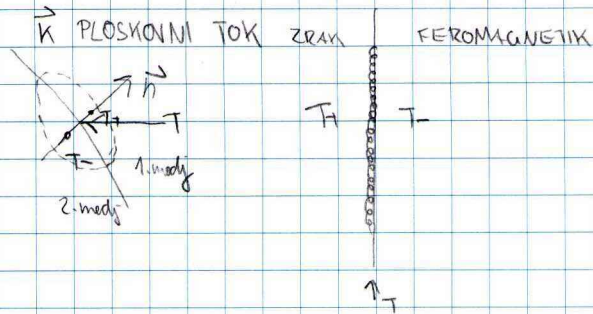 K PLOSKOVNI TOK ZRAK FEROMAGNETIK
n
T+ T T+ T-
T- 1. medij
2. medij
T